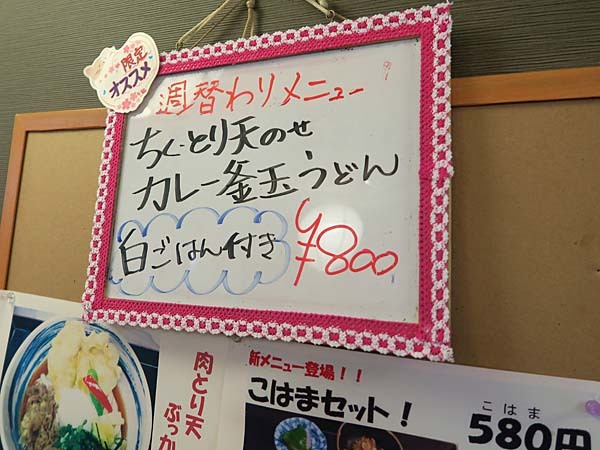 限定
オススメ
週替わりメニュー
ちく・とり天のせ
カレー釜玉うどん
白ごはん付き
¥800
肉とり天
ぶっか
新メニュー登場!!
こはまセット!
こはま
580円